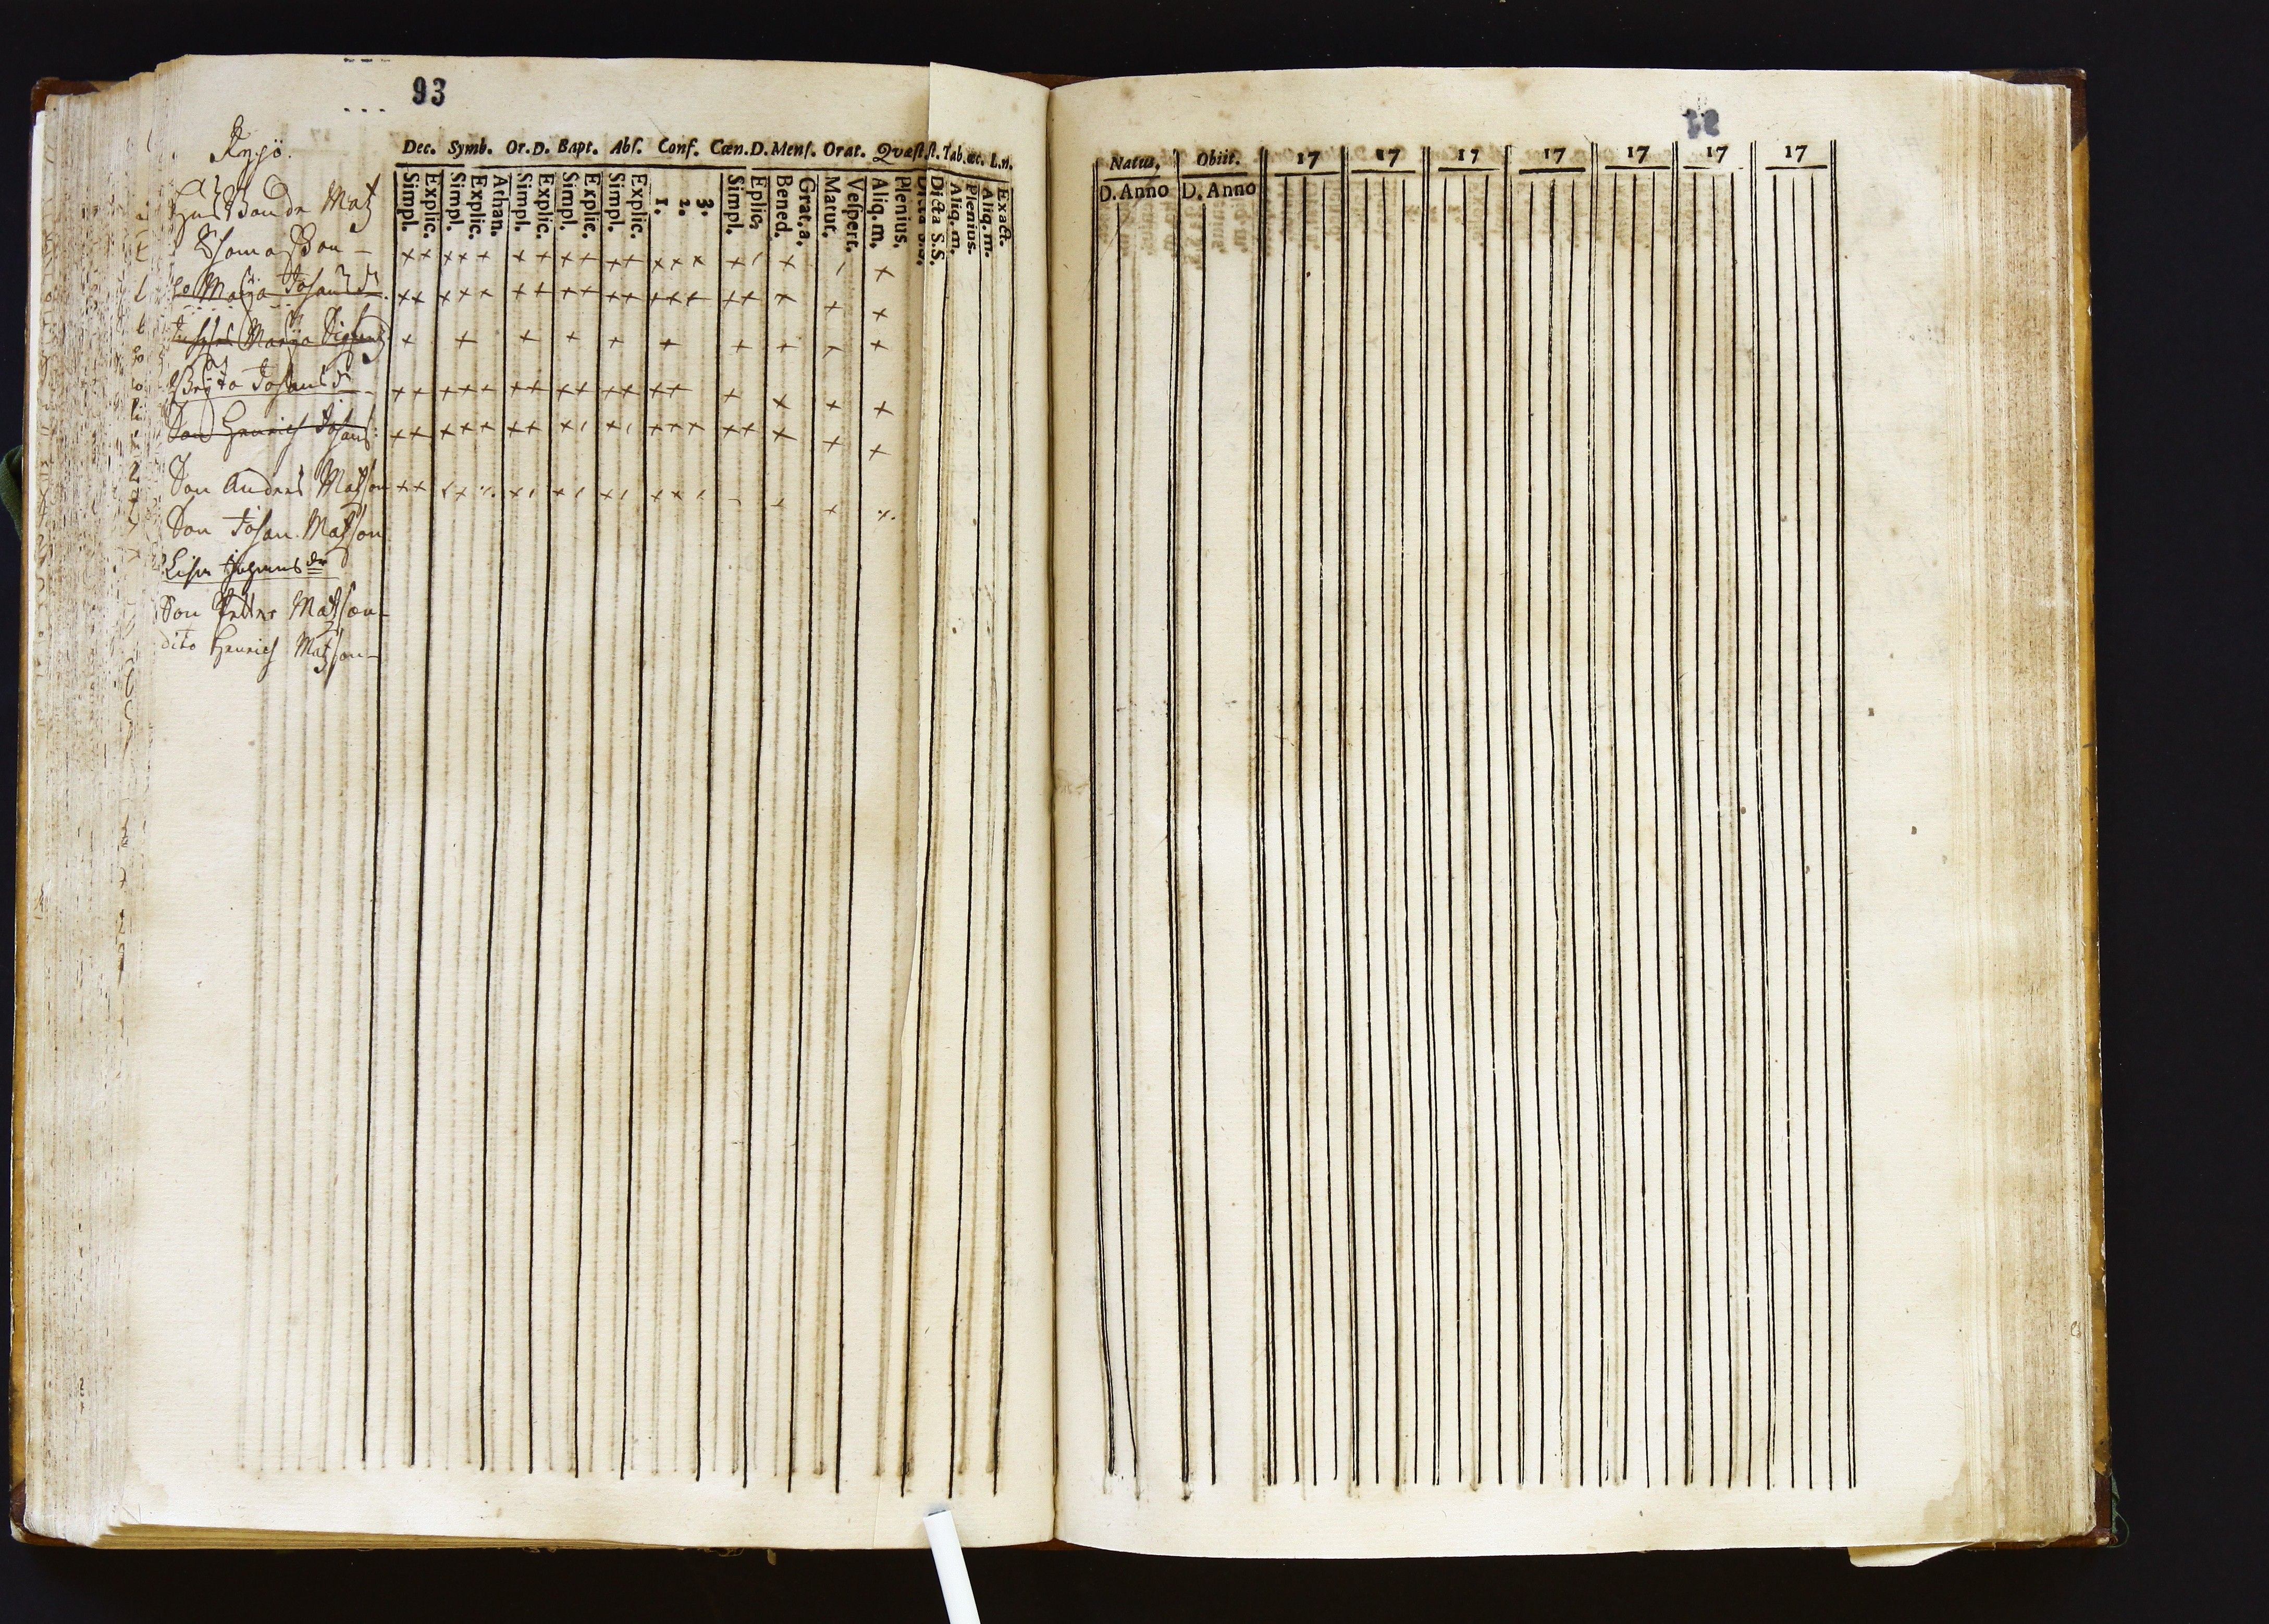 93
Dec. Symb. Or. D. Bapt. Abſ. Conf. Cœn. D. Menſ. Orat. Qvæſt ſt. Tab. œc. L.n.
Simpl. Explic. Simpl. Explic. Athan. Simpl. Explic. Simpl. Explic. Simpl. Explic. 1. 2. 3. Simpl. Eplic. Bened. Grat. a. Matut. Veſpert. Aliq. m. Plenius. Dicta S.S. Aliq. m. Plenius. Aliq. m. Exact.
Matz
Thomasson
Maija Johansd
Maija
Brita Johansd
Son Henrich Johans
Son Anders Matsson
Son Johan Matsson
Lisa
Son Petter Matsson
dito Henrich Matsson
Natus, Obiit. 17 17 17 17 17 17 17
D. Anno D. Anno